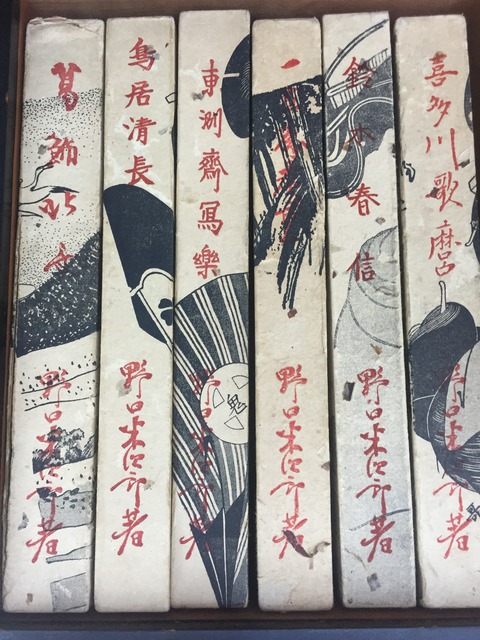 喜多川歌麿
野口米次郎著
鈴木春信
野口米次郎著
一
野口米次郎著
東洲齋冩樂
野口米次郎著
鬼
鳥居清長
野口米次郎著
葛飾北斎
野口米次郎著